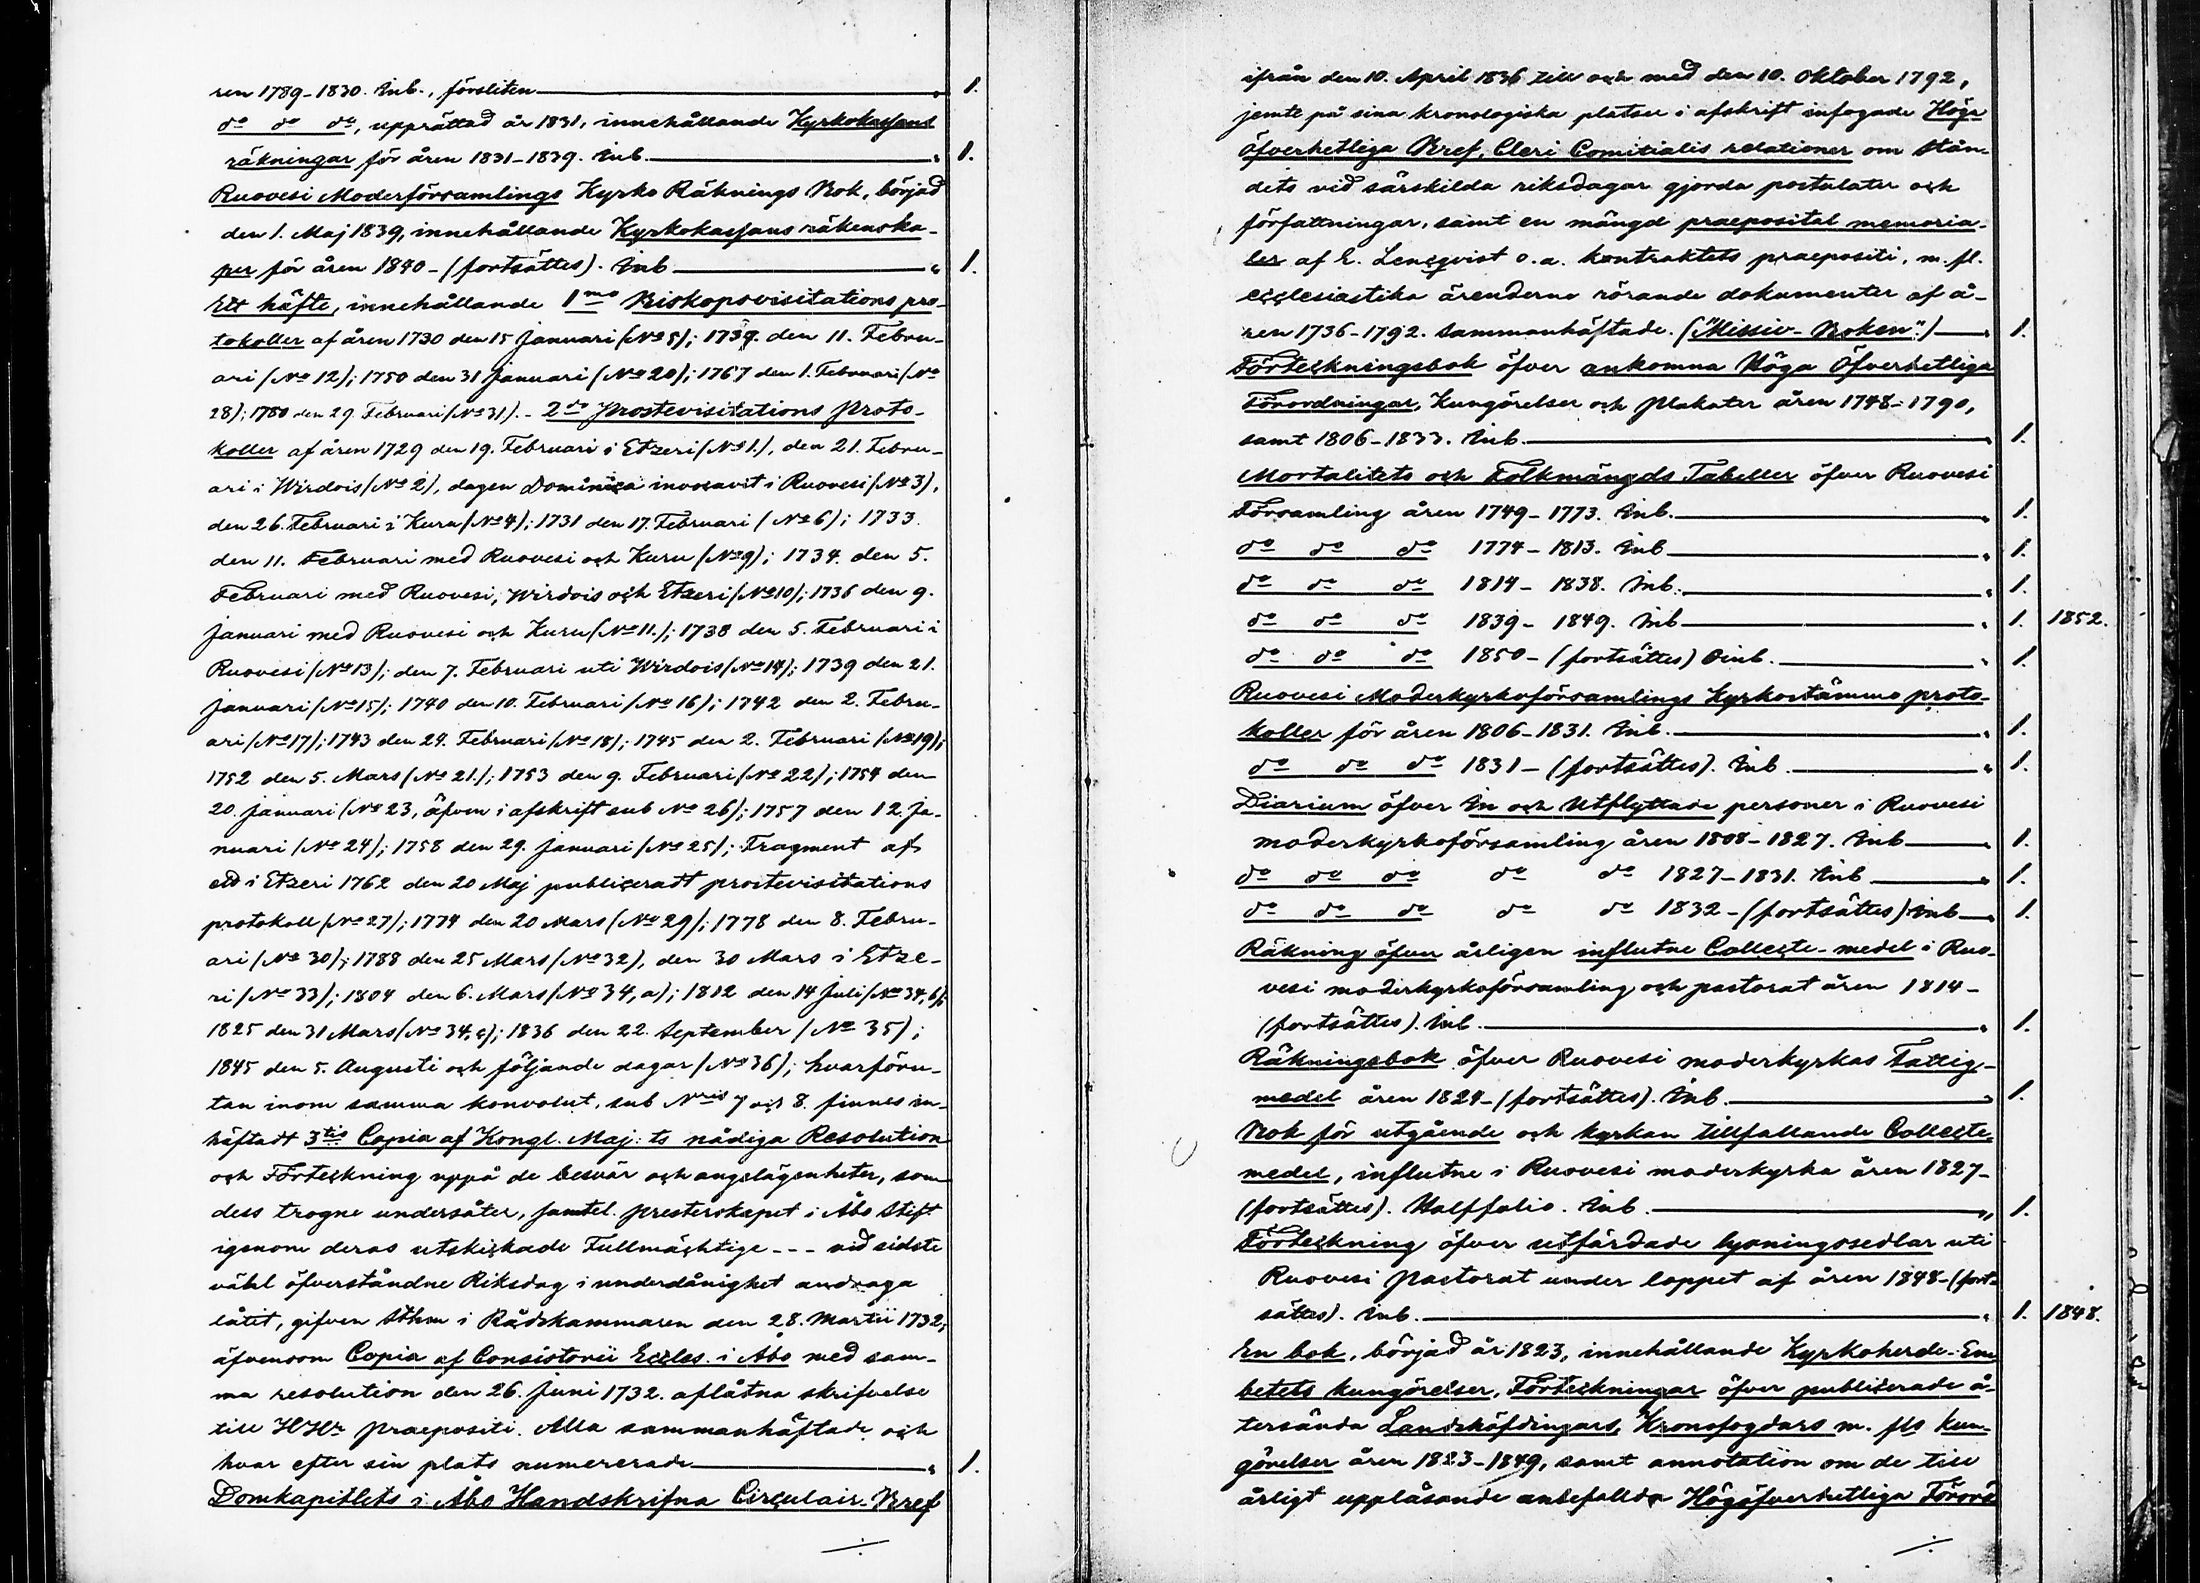 ren 1789-1830. Inb., försliten ——— " 1.
do do do, upprättad år 1831, innehållande Kyrkokassans
räkningar för åren 1831-1839. Inb. ——— " 1.
Ruovesi Moderförsamlings Kyrko Räknings Bok, börjad
den 1. Maj 1839, innehållande Kyrkokassans räkenska-
per för åren 1840-(fortsättes). Inb ——— " 1.
Ett häfte, innehållande 1mo Biskopsvisitations pro-
tokoller af åren 1730 den 15 Januari (No 5); 1739. den 11. Febru-
ari (No 12); 1750 den 31 Januari (No 20); 1767 den 1. Februari (No
28); 1780 den 29. Februari (No 31). - 2do Prostevisitations Proto-
koller af åren 1729 den 19. Februari i Etzeri (No 1.), den 21. Febru-
ari i Wirdois (No 2), dagen Dominica invocavit i Ruovesi (No 3),
den 26. Februari i Kuru (No 4); 1731 den 17. Februari (No 6); 1733.
den 11. Februari med Ruovesi och Kuru (No 9); 1734. den 5.
Februari med Ruovesi, Wirdois och Etzeri (No 10); 1736 den 9.
Januari med Ruovesi och Kuru (No 11.); 1738 den 5. Februari i
Ruovesi (No 13); den 7. Februari uti Wirdois (No 14); 1739 den 21.
Januari (No 15); 1740 den 10. Februari (No 16); 1742 den 2. Febru-
ari (No 17); 1743 den 24. Februari (No 18); 1745 den 2. Februari (No 19);
1752 den 5. Mars (No 21.); 1753 den 9. Februari (No 22); 1754 den
20. Januari (No 23, äfven i afskrift sub No 26); 1757 den 12. Ja-
nuari (No 24); 1758 den 29. Januari (No 25); Fragment af
ett i Etzeri 1762 den 20 Maj publiceradt prostevisitations
protokoll (No 27); 1774 den 20 Mars (No 29); 1778 den 8. Febru-
ari (No 30); 1788 den 25 Mars (No 32), den 30 Mars i Etze-
ri (No 33); 1804 den 6. Mars (No 34, a); 1812 den 14 Juli (No 34, b);
1825 den 31 Mars (No 34, c); 1836 den 22. September (No 35);
1845 den 5. Augusti och följande dagar (No 36); hvarföru-
tan inom samma konvolut, sub Nris 7 och 8. finnes in-
häftadt 3tio Copia af Kongl. Maj:ts nådiga Resolution
och Förteckning uppå de besvär och angelägenheter, som
dess trogne undersåter, samtel. presterskapet i Åbo Stift
igenom deras utskickade Fullmächtige --- vid sidste
vähl öfverståndne Riksdag i underdånighet andraga
låtit, gifven Sthm i Rådskammaren den 28. Martii 1732,
äfvensom Copia af Consistorii Eccles. i Åbo med sam-
ma resolution den 26. Juni 1732. aflåtna skrifvelse
till HHr Praepositi. Alla sammanhäftade och
hvar efter sin plats numererade ——— " 1.
Domkapitlets i Åbo Handskrifna Circulair-Bref
ifrån den 10. April 1836 till och med den 10. Oktober 1792,
jemte på sina kronologiska platser i afskrift infogade Höga
öfverhetliga Bref, Cleri Comitialis relationer om Stån-
dets vid särskilda riksdagar gjorda postulater och
författningar, samt en mängd praeposital memoria-
ler af E. Lencqvist o.a. kontraktets praepositi, m.fl.
ecclesiastika ärenderna rörande dokumenter af å-
ren 1736-1792. sammanhäftade. ("Missiv-Boken".) — " 1.
Förteckningsbok öfver ankomna Höga Öfverhetliga
Förordningar, Kungörelser och Plakater åren 1748-1790,
samt 1806-1833. Inb. ——— " 1.
Mortalitets och Folkmängds Tabeller öfver Ruovesi
Församling åren 1749-1773. Inb. ——— " 1.
do do do 1774-1813. Inb ——— " 1.
do do do 1814-1838. Inb. ——— " 1.
do do do 1839-1849. Inb ——— " 1. 1852.
do do do 1850-(fortsättes) Oinb. ——— " 1.
Ruovesi Moderkyrkoförsamlings Kyrkostämmo proto-
koller för åren 1806-1831. Inb. ——— " 1.
do do do 1831-(fortsättes). Inb. ——— " 1.
Diarium öfver In och Utflyttade personer i Ruovesi
moderkyrkoförsamling åren 1808-1827. Inb ——— " 1.
do do do do do 1827-1831. Inb ——— " 1.
do do do do do 1832-(fortsättes) Inb — " 1.
Räkning öfver årligen influtne Collecte-medel i Ruo-
vesi moderkyrkoförsamling och pastorat åren 1814-
(fortsättes). Inb. ——— " 1.
Räkningsbok öfver Ruovesi moderkyrkas Fattig-
medel åren 1824-(fortsättes). Inb. ——— " 1.
Bok för utgående och kyrkan tillfallande Collecte-
medel, influtne i Ruovesi moderkyrka åren 1827-
(fortsättes). Halffolio. Inb. ——— " 1.
Förteckning öfver utfärdade lysningssedlar uti
Ruovesi Pastorat under loppet af åren 1848-(fort-
sättes). Inb. ——— " 1. 1848.
En bok, börjad år 1823, innehållande Kyrkoherde-Em-
betets kungörelser, Förteckningar öfver publicerade å-
tersända Landshöfdingars, Kronofogdars m. fls kun-
görelser åren 1823-1849, samt annotation om de till
årligt uppläsande anbefallda Högöfverhetliga Förord